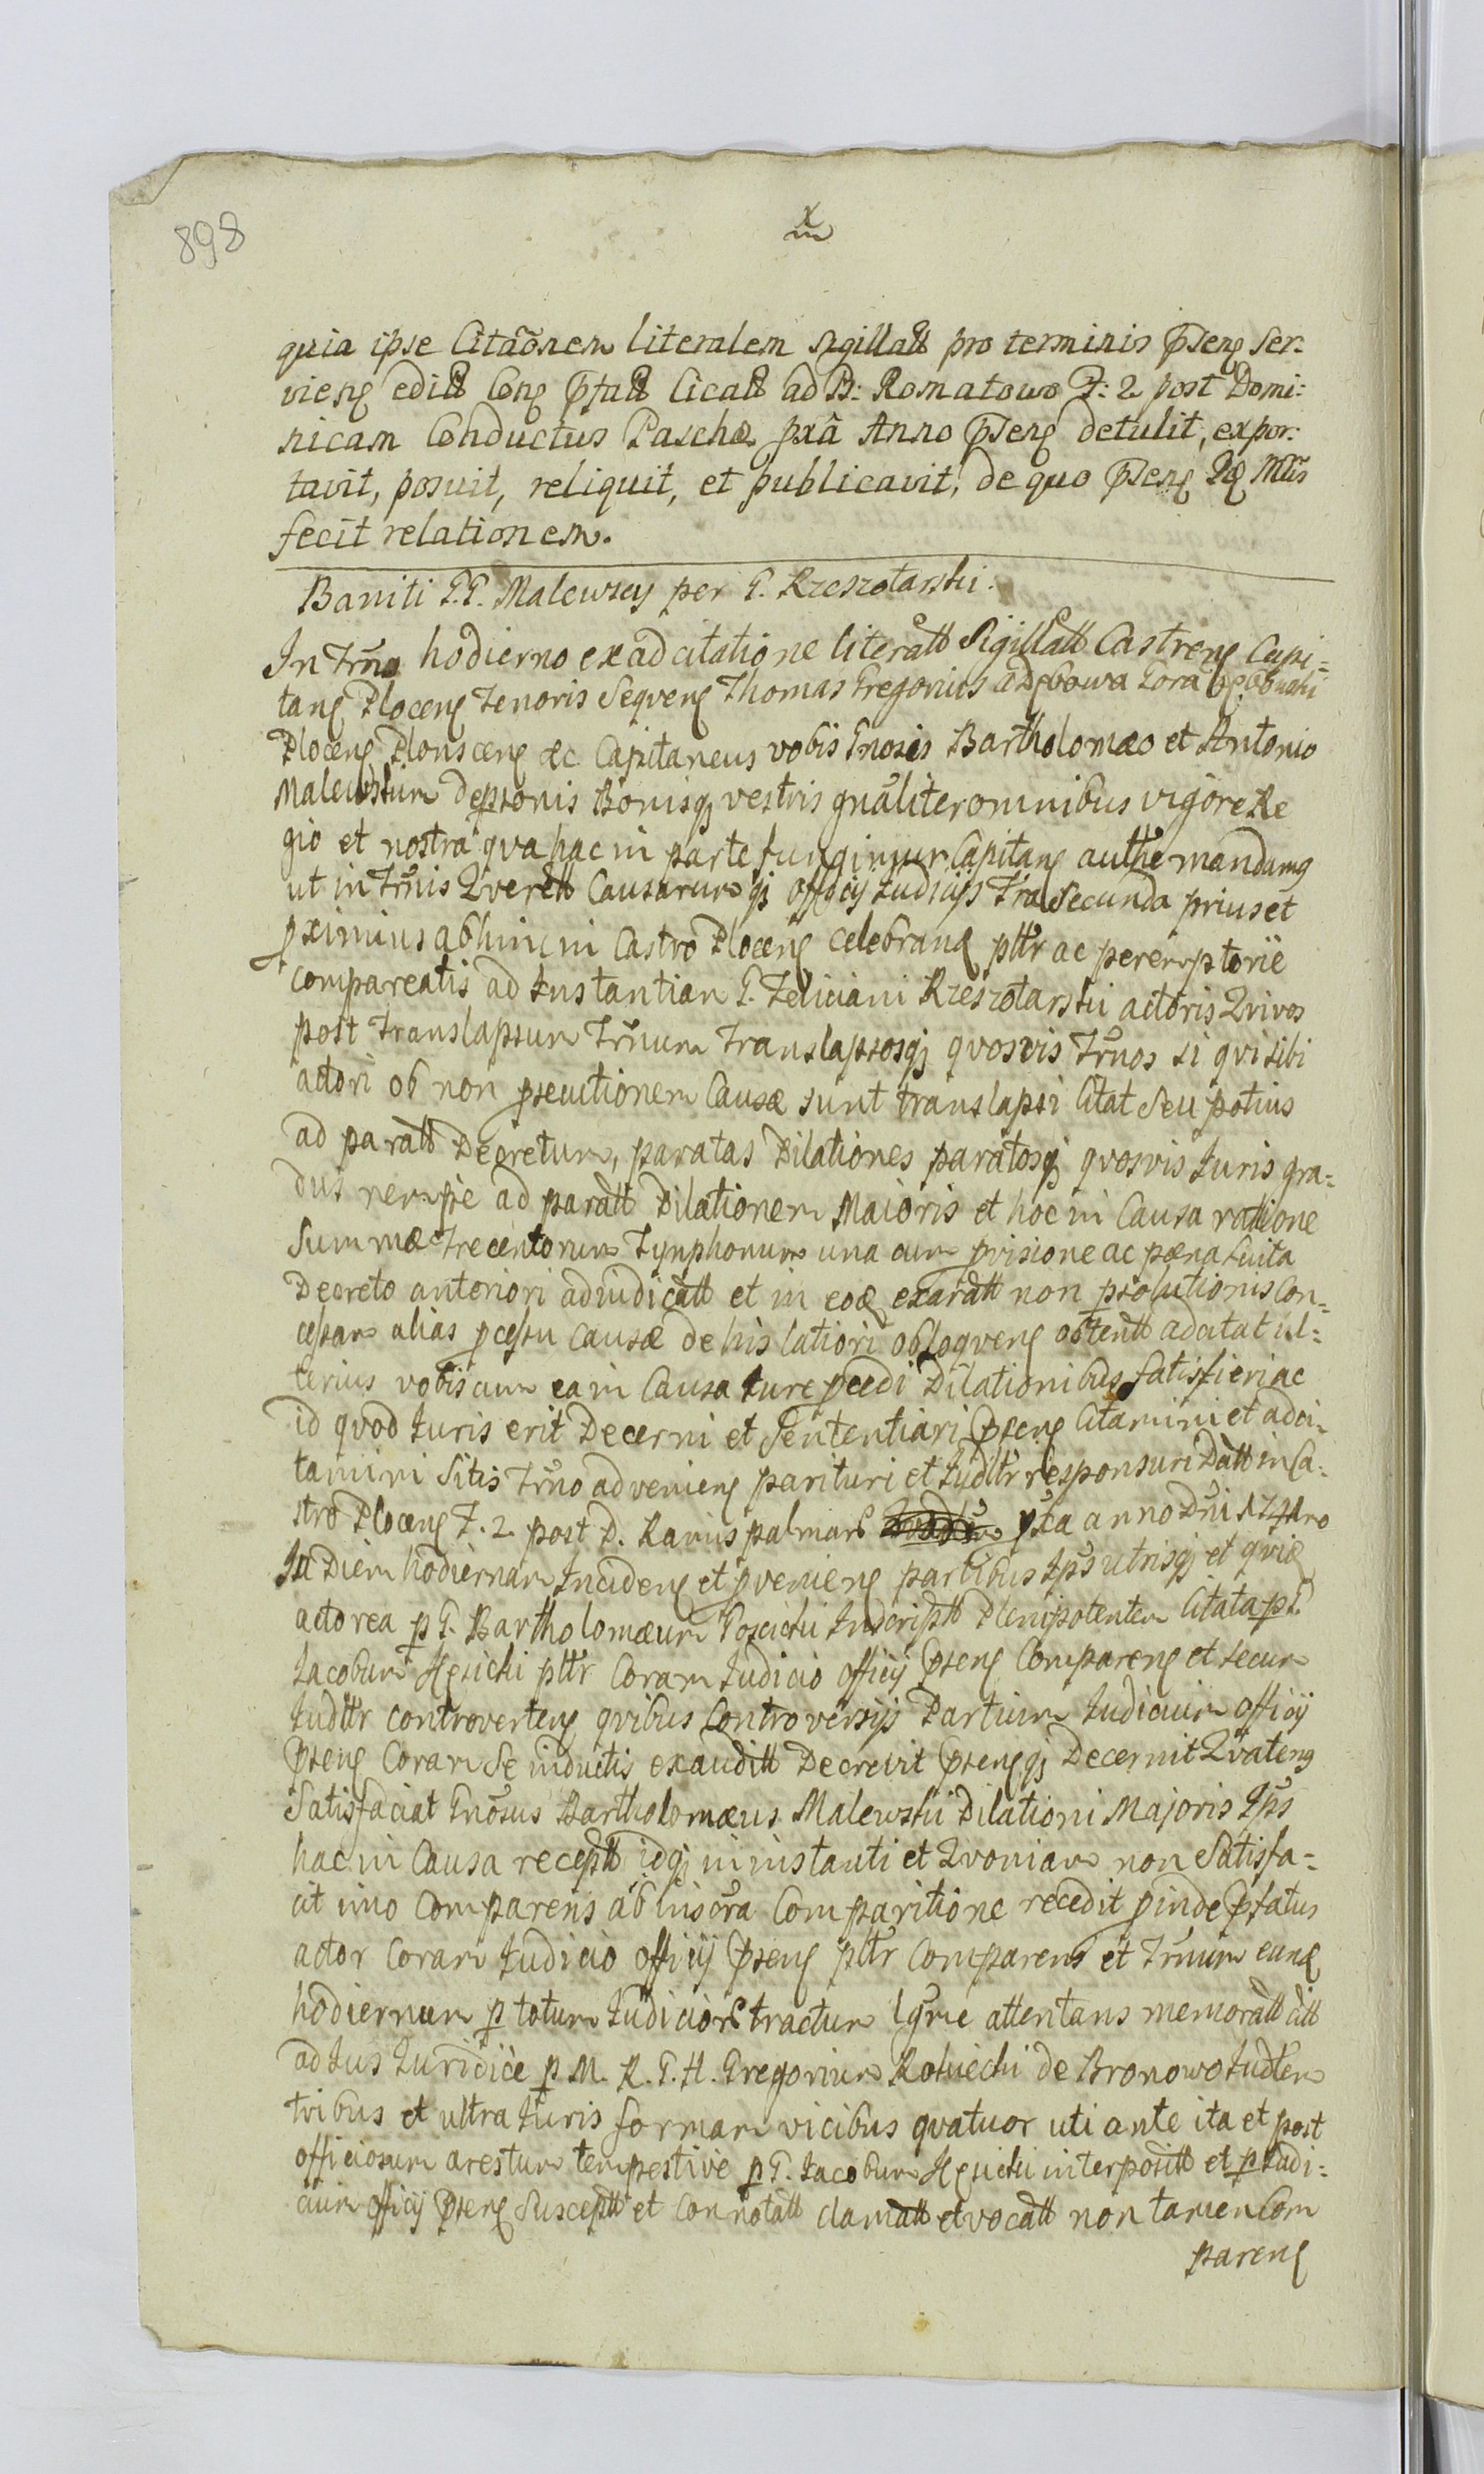 898
quia ipse Citaõnem literalem sigillatt pro terminis Psens Ser:
viens editt Cons Pfatt Cicatt ad B: Romatowo F: 2 post Domi:
nicam Conductus Paschæ pxã Anno Psens detulit, expor:
tavit, posuit, reliquit, et publicavit, de quo Psens
fecit relationem.
Baniti G.G. Malewscy per G. Rzeszotarski.
In Trño hodierno ex ad citatione literatt Sigillatt Castrens Capi=
tans Plocens Tenoris Seqvens Thomas Gregorius a Dębowa Gora Dębowski
Plocens Plonscens &c Capitaneus vobis Gnosis Bartholomæo et Antonio
Malewskim de psonis Bonisqj vestris gnãliter omnibus vigore Re
gio et nostra qva hac in parte fungimur Capitans authe mandamg
ut in Trñis Qverett Causarum qj officij Judicijs Fria Secunda prius et
pximius ab hinc in Castro Plocens celebrand pltr ac peremptorie
compareatis ad Instantiam G. Feliciani Rzeszotarski actoris Qvi vos
post translapsum Trñum translapsosqj qvosvis Trños si qvi sibi
actori ob non psecutionem Causæ sunt translapsi Citat Seu potius
ad paratt Decretum, paratas Dilationes paratosqj qvosvis Juris gra=
dus nempe ad paratt Dilationem Maioris et hoc in Causa ratione
Summæ Trecentorum Tynphonum una cum pvisione ac pæna luita
Decreto anteriori adiudicatt et in eod exaratt non psolutionis Con=
cessam alias pcessu Causæ de his latiori obloqvens obtentt adcitat ul=
terius vobiscum ea in Causa Jure pcedi Dilationibus satisfieri ac
id qvod Juris erit Decerni et Sententiari Psens Citamini et adci=
tamini Sitis Trño adveniens parituri et Judltr responsuri Datt in Ca=
stro Plocens F. 2. post D. Ramis palmar pxa anno Dni 1741mo
In Diem hodiernam Incidens et pveniens partibus Ips utrisqj et qvid
actorea p G. Bartholomæum Goscicki Inscriptt Plenipotentem Citata p G.
Jacobum Hęsicki pltr Coram Judicio officij Psens Comparens et secum
Judltr controvertens qvibus Controversijs Partium Judicium officij
Psens Coram Se inductis exauditt Decrevit Psensqj Decernit Qvateng
Satisfaciat Gnosus Bartholomæus Malewski Dilationi Majoris Ips
hac in Causa receptt idqj in instanti et Qvoniam non Satisfa=
cit imo Comparens ab hisora Comparitione recedit pinde Pfatus
actor Coram Judicio officij Psens pltr Comparens et Trñum eund
hodiernum p totum Judicior tractum lgme attentans memoratt citt
ad Jus Juridice p M. R. G. H. Gregorium Rokicki de Bronowo Judlem
tribus et ultra Juris formam vicibus qvatuor uti ante ita et post
officiosum arestum tempestive p G. Jacobum Hęsicki interpositt et p Judi=
cium officij Psens Susceptt et Connotatt clamatt et vocatt non tamen Com
parens